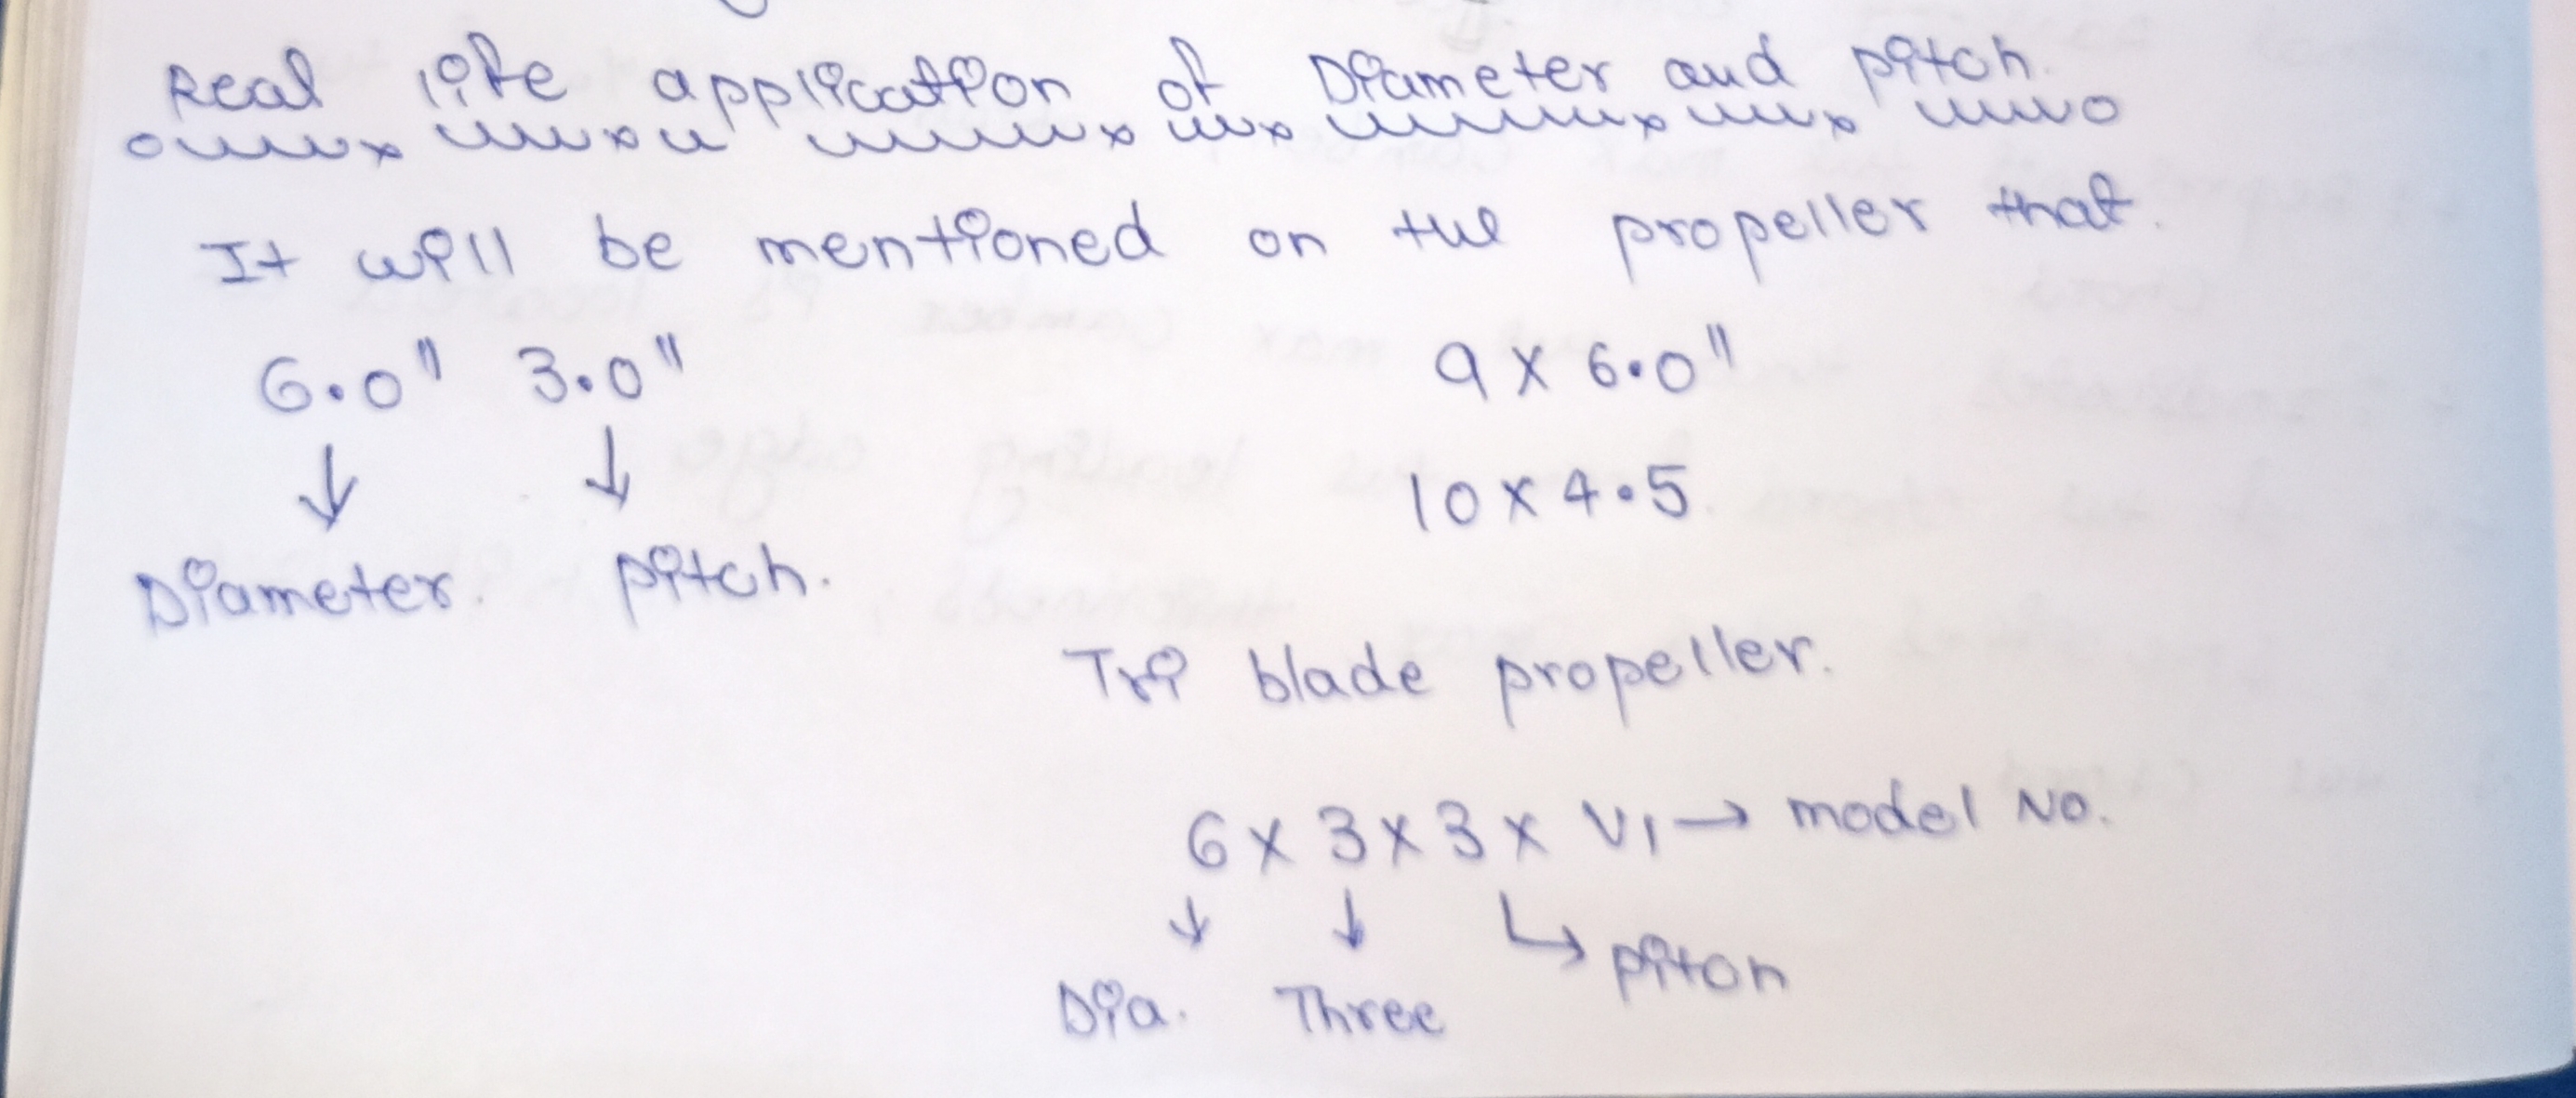 Real life application of Diameter and pitch.
It will be mentioned on the propeller that.
6.0" 3.0" 9 x 6.0"
10 x 4.5
Diameter. pitch.
Tri blade propeller.
6 x 3 x 3 x V1 → model No.
Dia. Three pitch